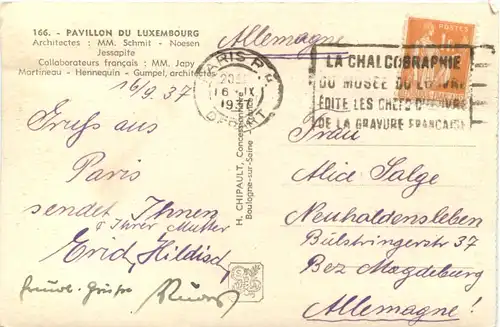 166. - PAVILLON DU LUXEMBOURG
Architectes : MM. Schmit - Noesen
Jessapite
Collaborateurs français : MM. Japy
Martineau - Hennequin - Gumpel, architectes
Allemagne
POSTES
PARIS R.P.
16 IX
1937
DEPART
LA CHALCOGRAPHIE
DU MUSÉE DU LOUVRE
ÉDITE LES CHEFS D'ŒUVRE
DE LA GRAVURE FRANÇAISE
16/9.37
Gruss aus
Paris
sendet Ihnen
& Ihrer Mutter
H. CHIPAULT, Concessionnaire
Boulogne-sur-Seine
Frau
Alice Salge
Neuhaldensleben
Bülstringerstr 37
Bez Magdeburg
Allemagne!